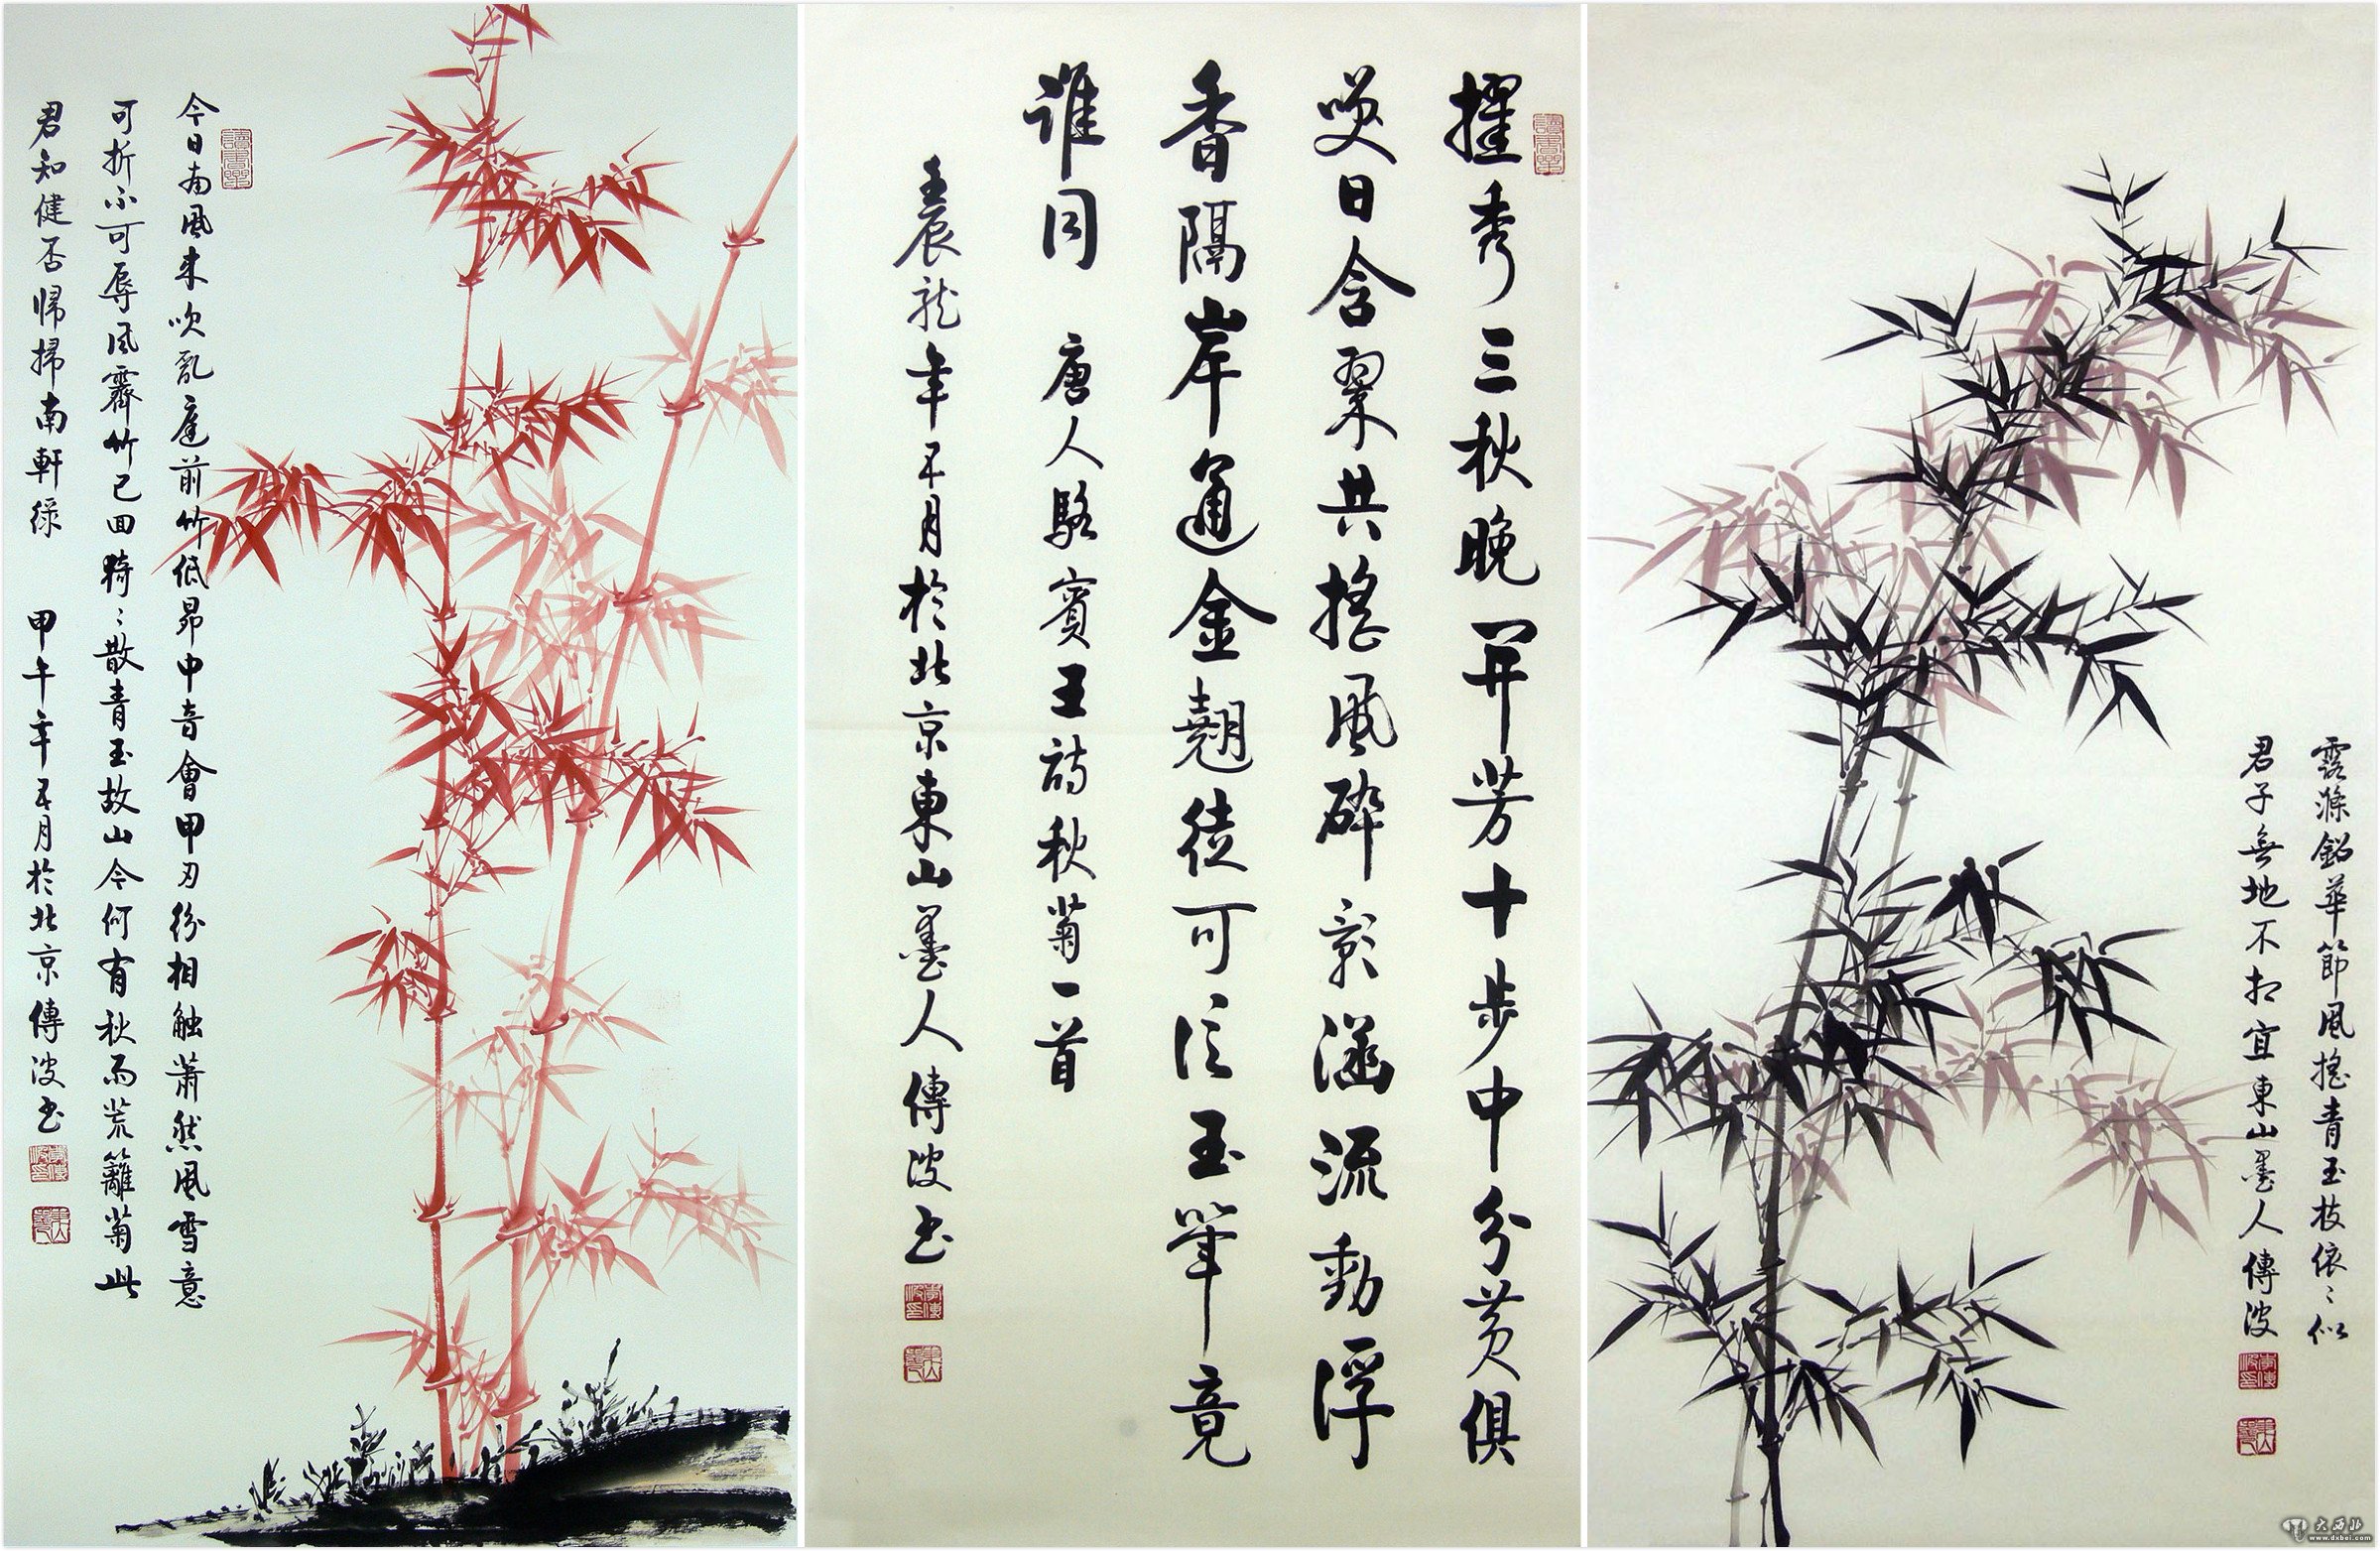 今日南風来吹亂庭前竹低昂中音會甲刃紛相触蕭然風雪意
可折不可辱風霽竹已回猗〻散青玉故山今何有秋雨荒籬菊此
君知健否歸掃南軒綠 甲午年五月於北京傳波书
擢秀三秋晚開芳十步中分黃俱
笑日含翠共搖風碎影涵流動浮
香隔岸通金翹徒可泛玉筆竟
誰同 唐人駱賓王詩秋菊一首
壬辰龍年五月於北京東山墨人傳波书
露滌鉛華節風搖青玉枝依〻似
君子無地不相宜東山墨人傳波
大西北
www.dxbei.com